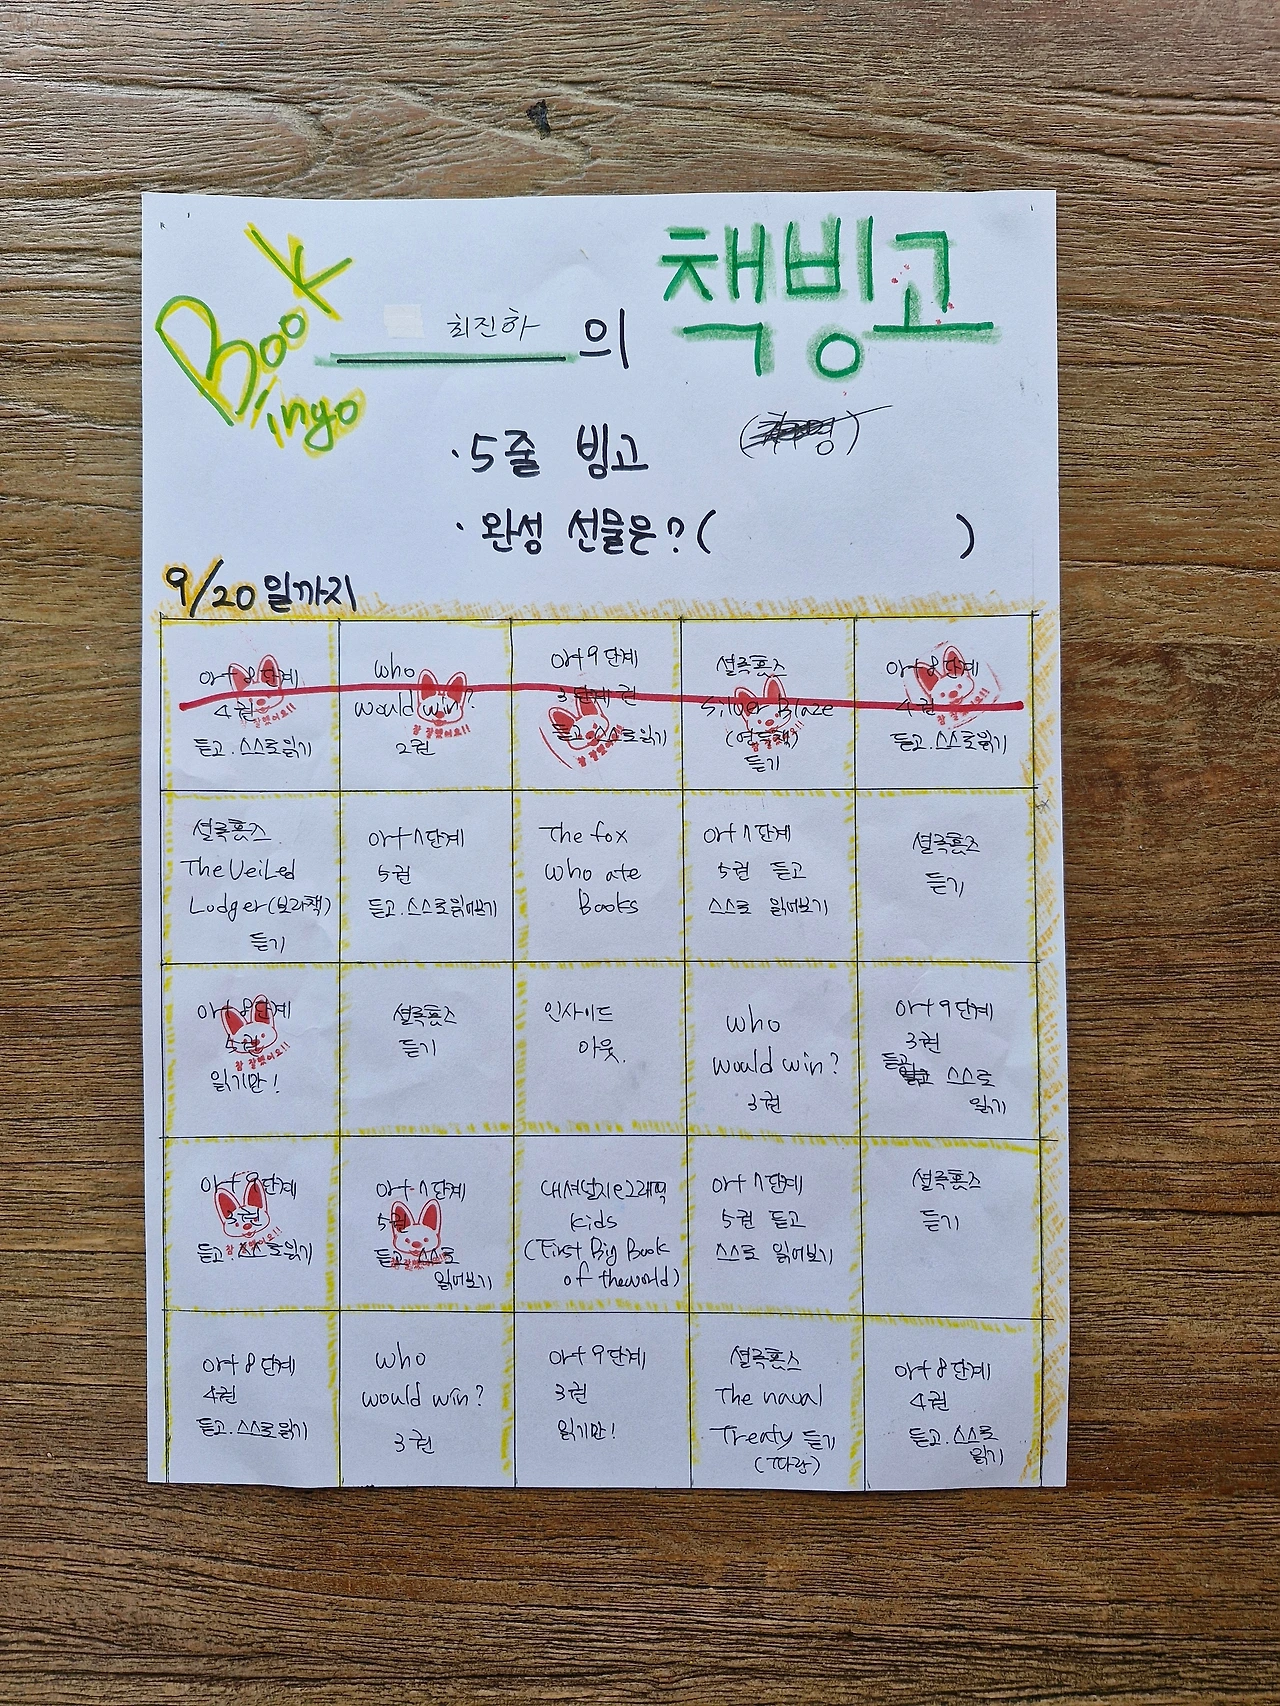 Book
Bingo
최진하 의
책빙고
· 5줄 빙고
· 완성 선물은? ( )
9/20일까지
ort 8단계
4권
듣고. 스스로읽기
who
would win?
2권
참 잘했어요!!
ort 9단계
3권
듣고. 스스로읽기
참 잘했어요!!
셜록홈즈
Silver Blaze
(연두책)
듣기
ort 8단계
4권
듣고. 스스로읽기
참 잘했어요!!
셜록홈즈
The Veiled
Lodger(보라책)
듣기
ort 7단계
5권
듣고. 스스로읽어보기
The fox
who ate
Books
ort 7단계
5권 듣고
스스로 읽어보기
셜록홈즈
듣기
ort 8단계
5권
읽기만!
참 잘했어요!!
셜록홈즈
듣기
인사이드
아웃.
who
would win?
3권
ort 9단계
3권
듣고 스스로
읽기
ort 9단계
3권
듣고. 스스로읽기
참 잘했어요!!
ort 7단계
5권
듣고. 스스로
읽어보기
내셔널지오그래픽
kids
(First Big Book
of the world)
ort 7단계
5권 듣고
스스로 읽어보기
셜록홈즈
듣기
ort 8단계
4권
듣고. 스스로읽기
who
would win?
3권
ort 9단계
3권
읽기만!
셜록홈즈
The naval
Treaty 듣기
(파랑)
ort 8단계
4권
듣고. 스스로
읽기